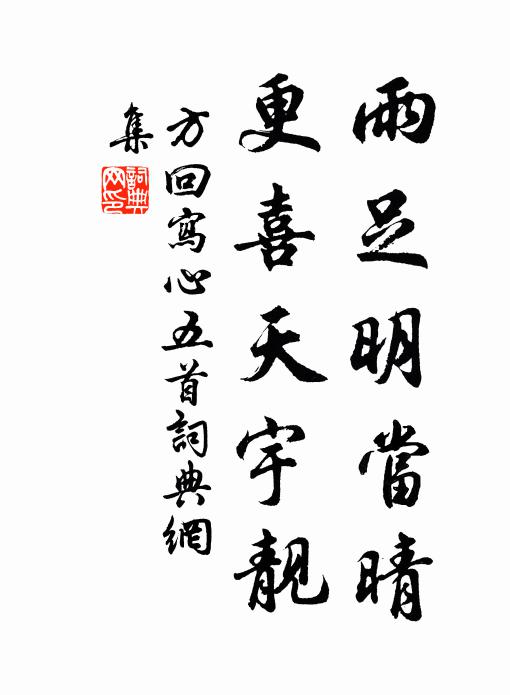 雨足明當晴
更喜天宇靚
方回寫心五首詞典網
集
詞典
网印